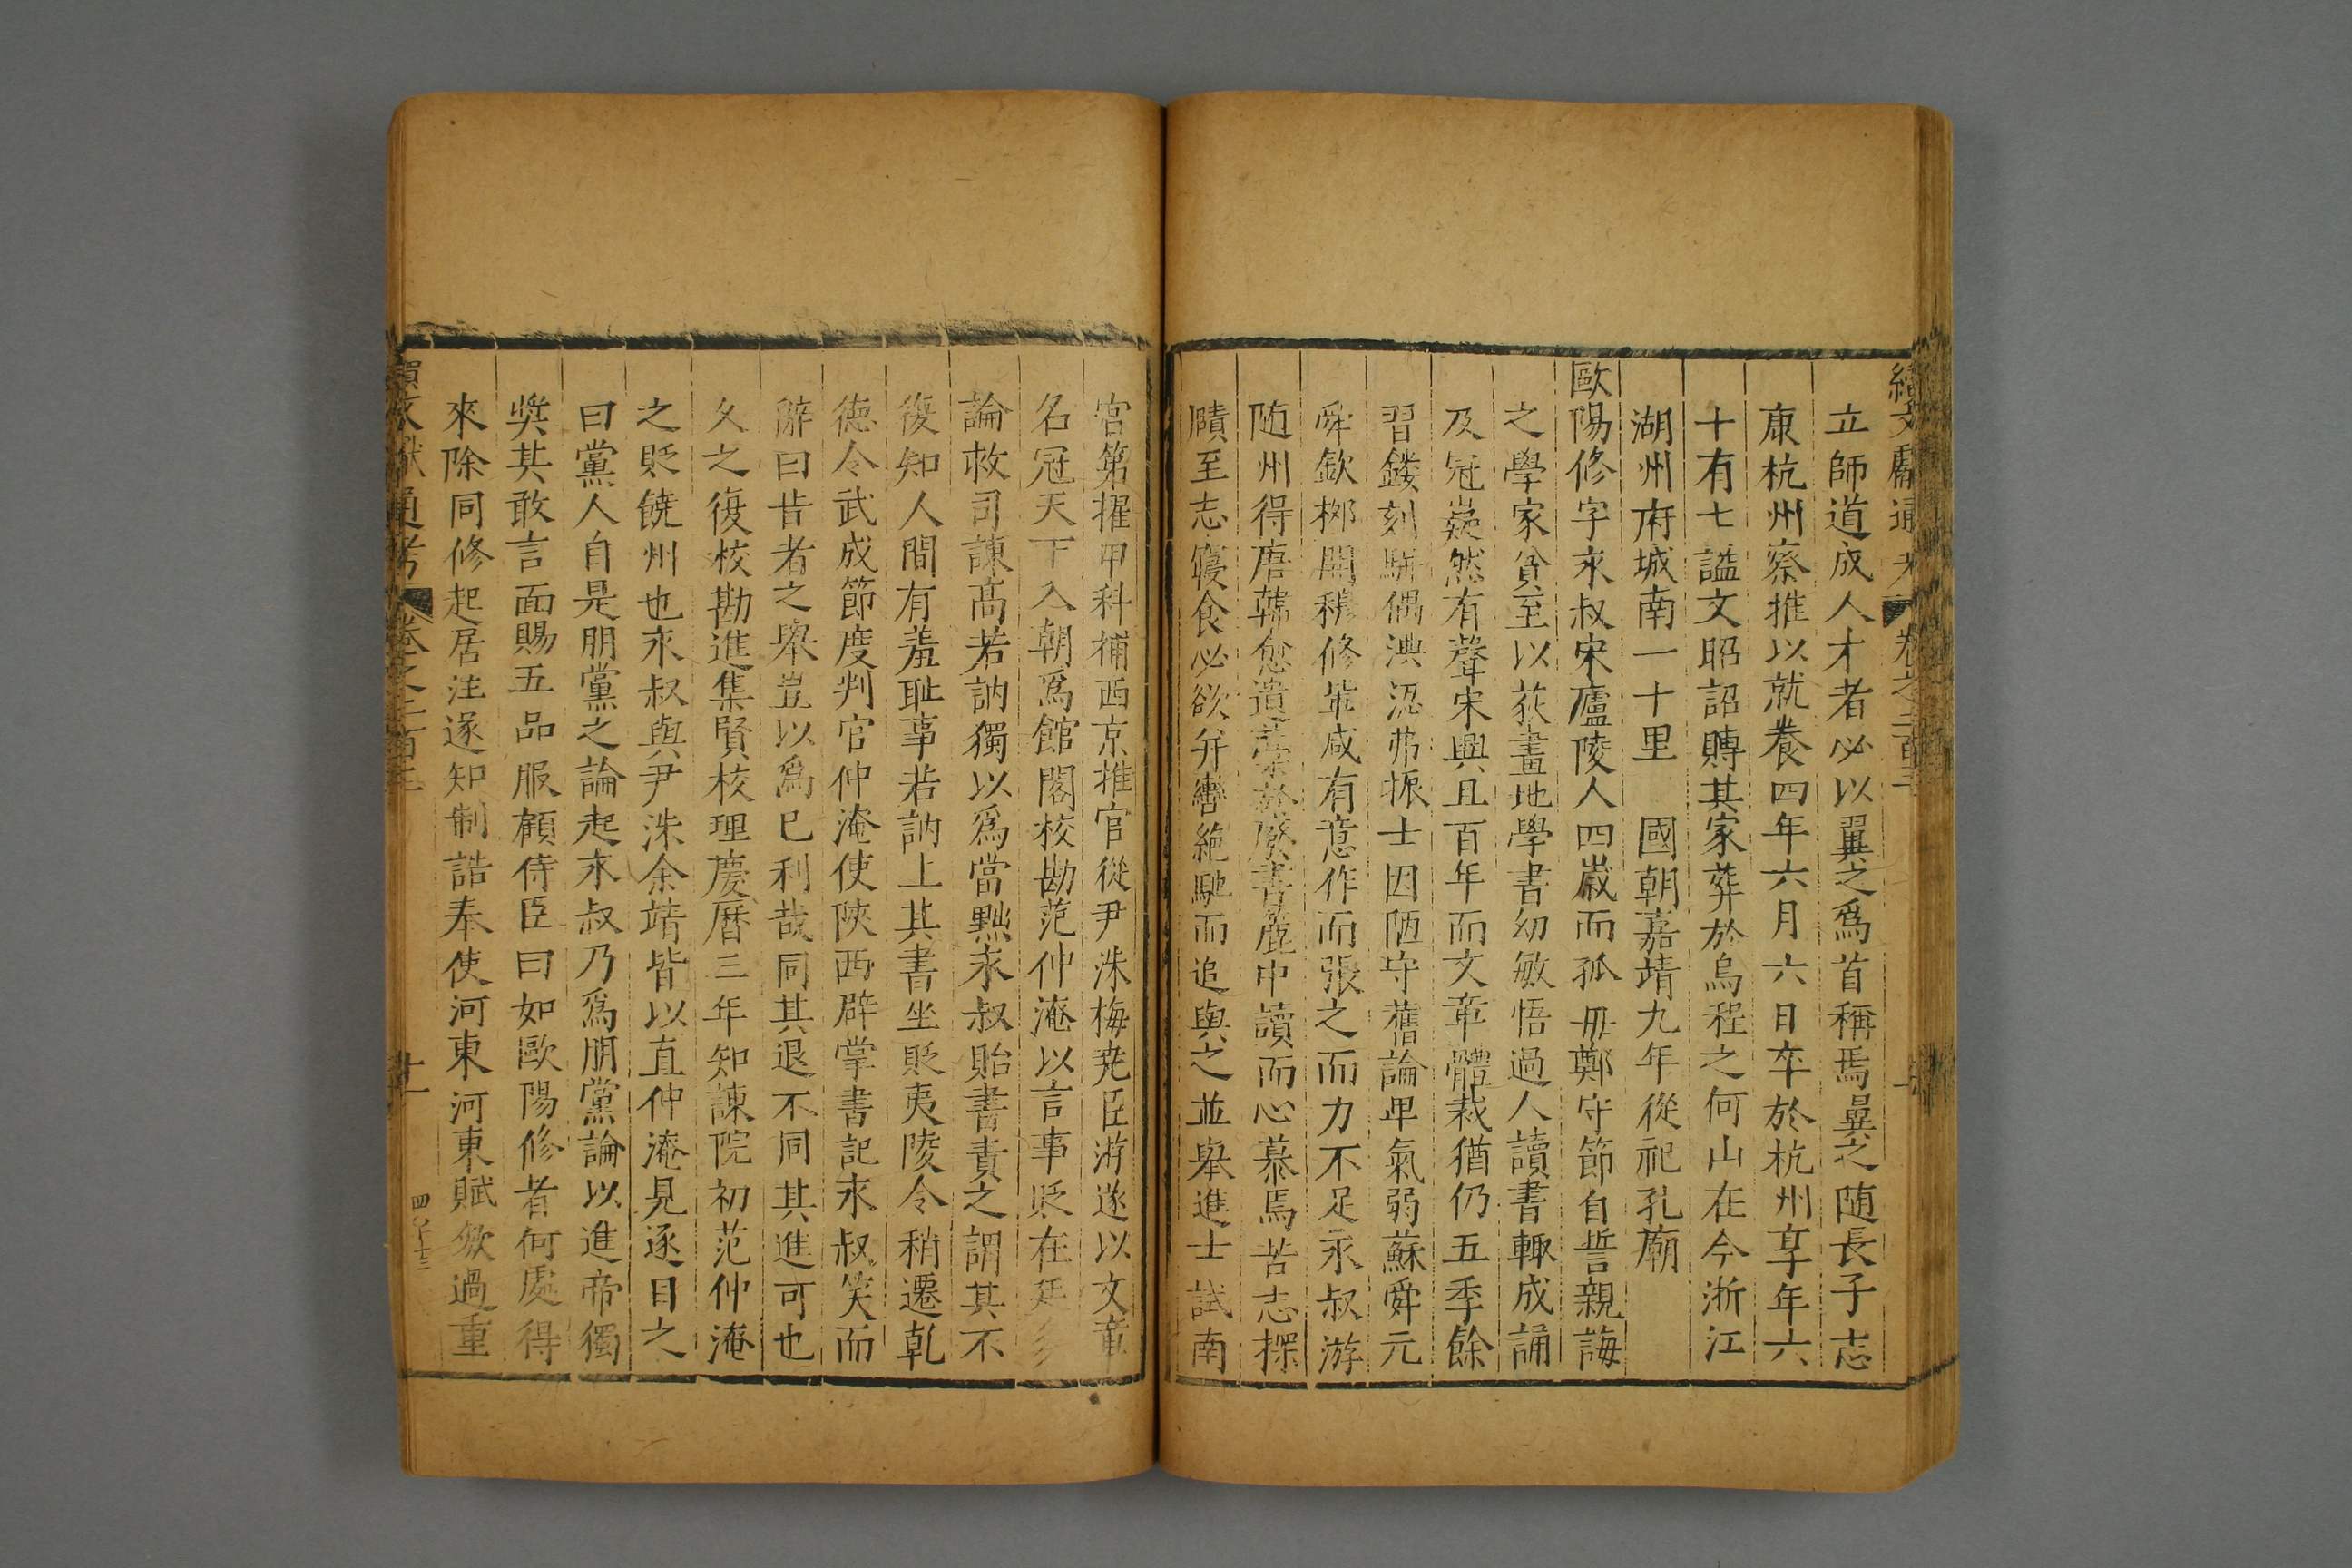 續文獻通考 卷之二百二
立師道成人才者必以翼之爲首稱焉翼之随長子志
康杭州察推以就養四年六月六日卒於杭州享年六
十有七謚文昭詔賻其家葬於烏程之何山在今浙江
湖州府城南一十里 國朝嘉靖九年從祀孔廟
歐陽修字永叔宋廬陵人四歲而孤毋鄭守節自誓親誨
之學家貧至以荻畫地學書幼敏悟過人讀書輙成誦
及冠嶷然有聲宋興且百年而文章體裁猶仍五季餘
習鏤刻駢偶淟涊弗振士因陋守舊論卑氣弱蘇舜元
舜欽栁開穆修軰咸有意作而張之而力不足永叔游
随州得唐韓愈遺藁於廢書簏中讀而心慕焉苦志探
賾至忘寢食必欲并轡絶馳而追與之並舉進士試南
宫第擢甲科補西京推官從尹洙梅堯臣游遂以文章
名冠天下入朝爲館閣校勘范仲淹以言事貶在廷多
論救司諫高若訥獨以爲當黜永叔貽書責之謂其不
復知人間有羞耻事若訥上其書坐貶夷陵令稍遷乹
德令武成節度判官仲淹使陜西辟掌書記永叔笑而
辭曰昔者之舉豈以爲已利哉同其退不同其進可也
久之復校勘進集賢校理慶曆三年知諫院初范仲淹
之貶饒州也永叔與尹洙余靖皆以直仲淹見逐目之
曰黨人自是朋黨之論起永叔乃爲朋黨論以進帝獨
奬其敢言面賜五品服顧侍臣曰如歐陽修者何處得
來除同修起居注遂知制誥奉使河東河東賦斂過重
續文獻通考 卷之二百二 十一